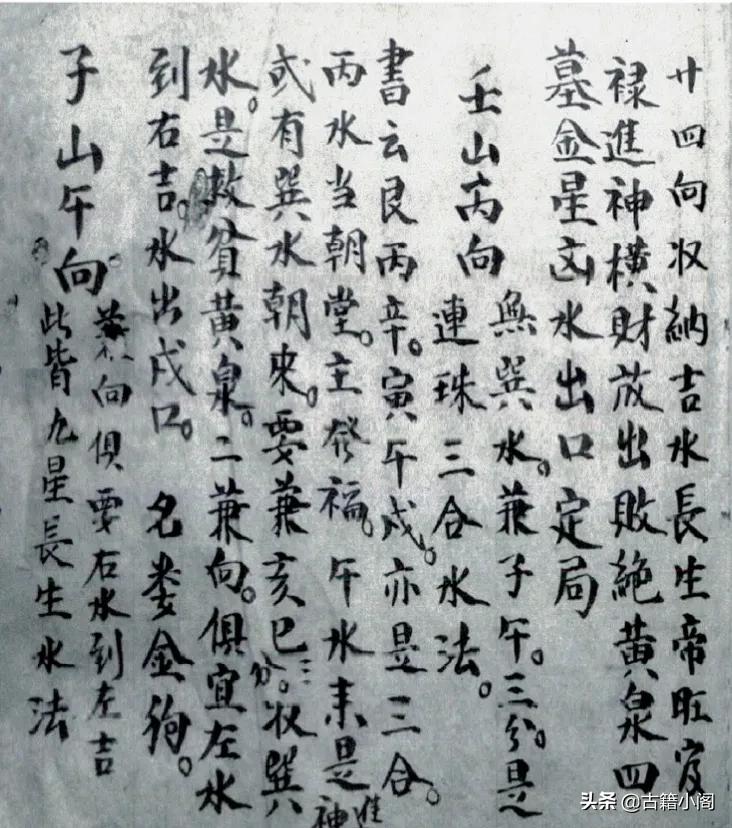 廿四向收納吉水長生帝旺官
禄進神橫財放出敗絶黄泉四
墓金星凶水出口定局
壬山丙向
無巽水。兼子午。三分。是
連珠三合水法。
書云艮丙辛。寅午戍。亦是三合。
丙水当朝堂。主發福。午水来是進神
或有巽水朝来。要兼亥巳三分。收巽
水。是救貧黄泉。二兼向。俱宜左水
到右吉。水出戍口。名娄金狗。
子山午向。
兼向俱要右水到左吉
此皆九星長生水法
头条 @古籍小阁